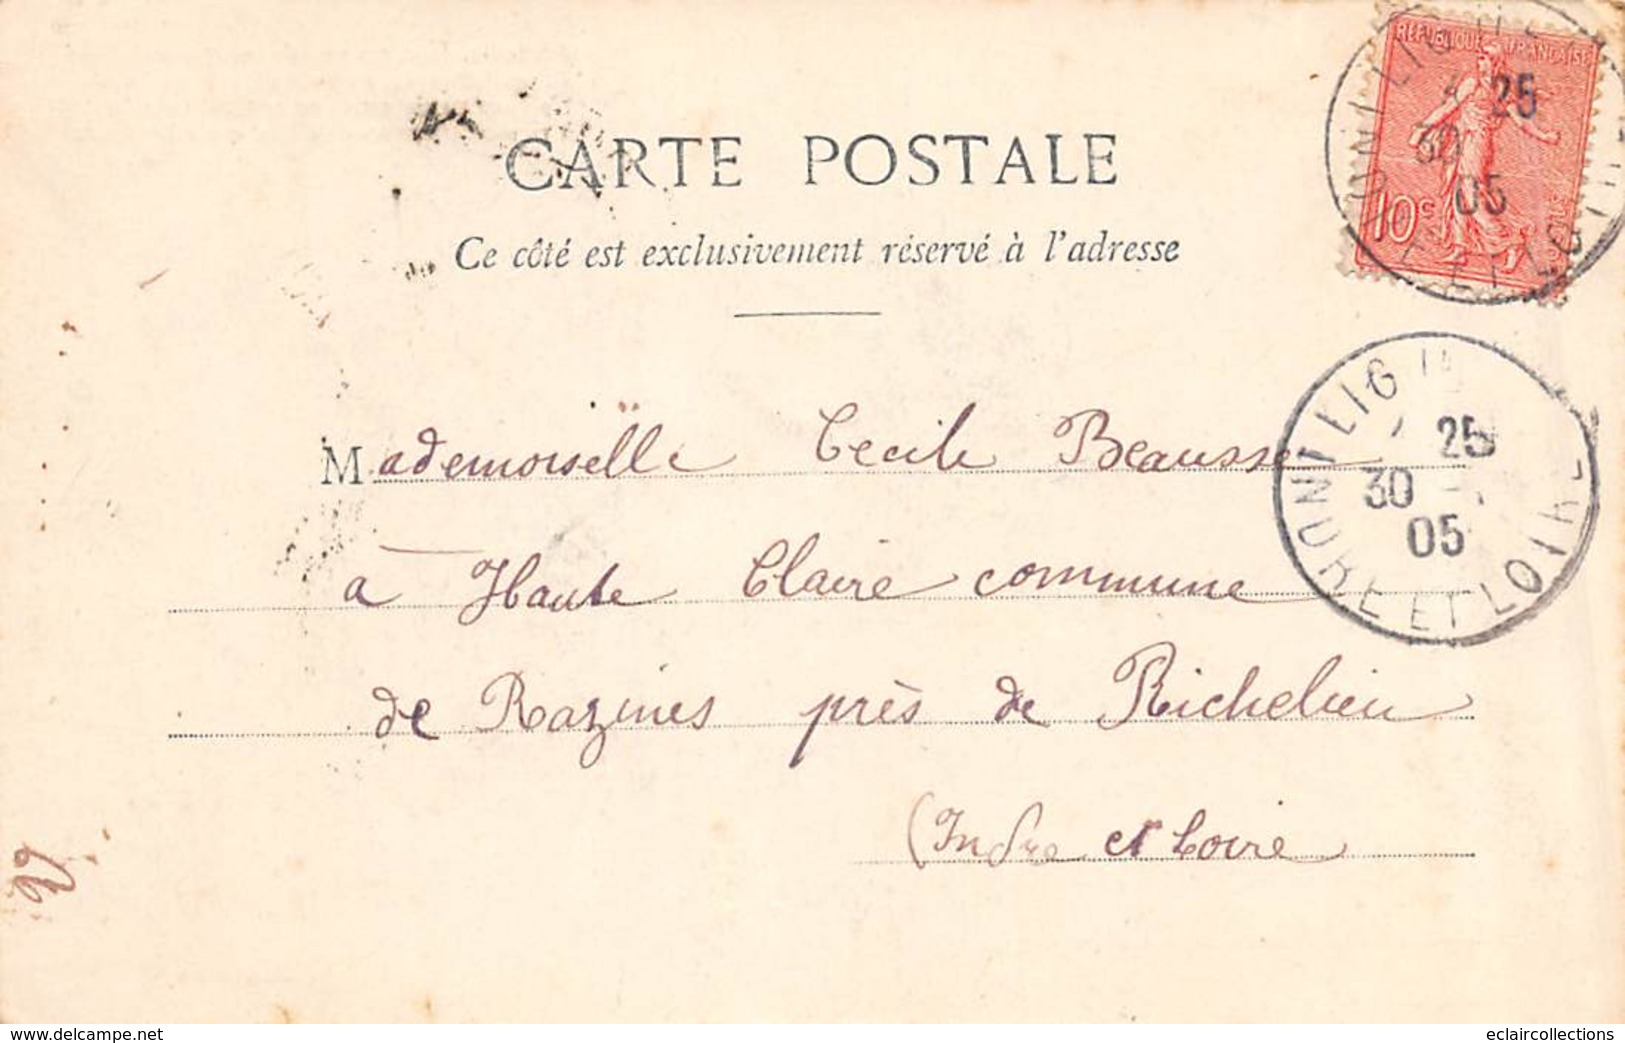 RÉPUBLIQUE FRANÇAISE
10c
25
30
05
CARTE POSTALE
Ce côté est exclusivement réservé à l'adresse
25
30
05
INDRE ET LOIRE
Mademoiselle Cecile Beausse
à Haute Claire commune
de Razines près de Richelieu
(Indre et Loire
https://www.delcampe.net
eclaircollections